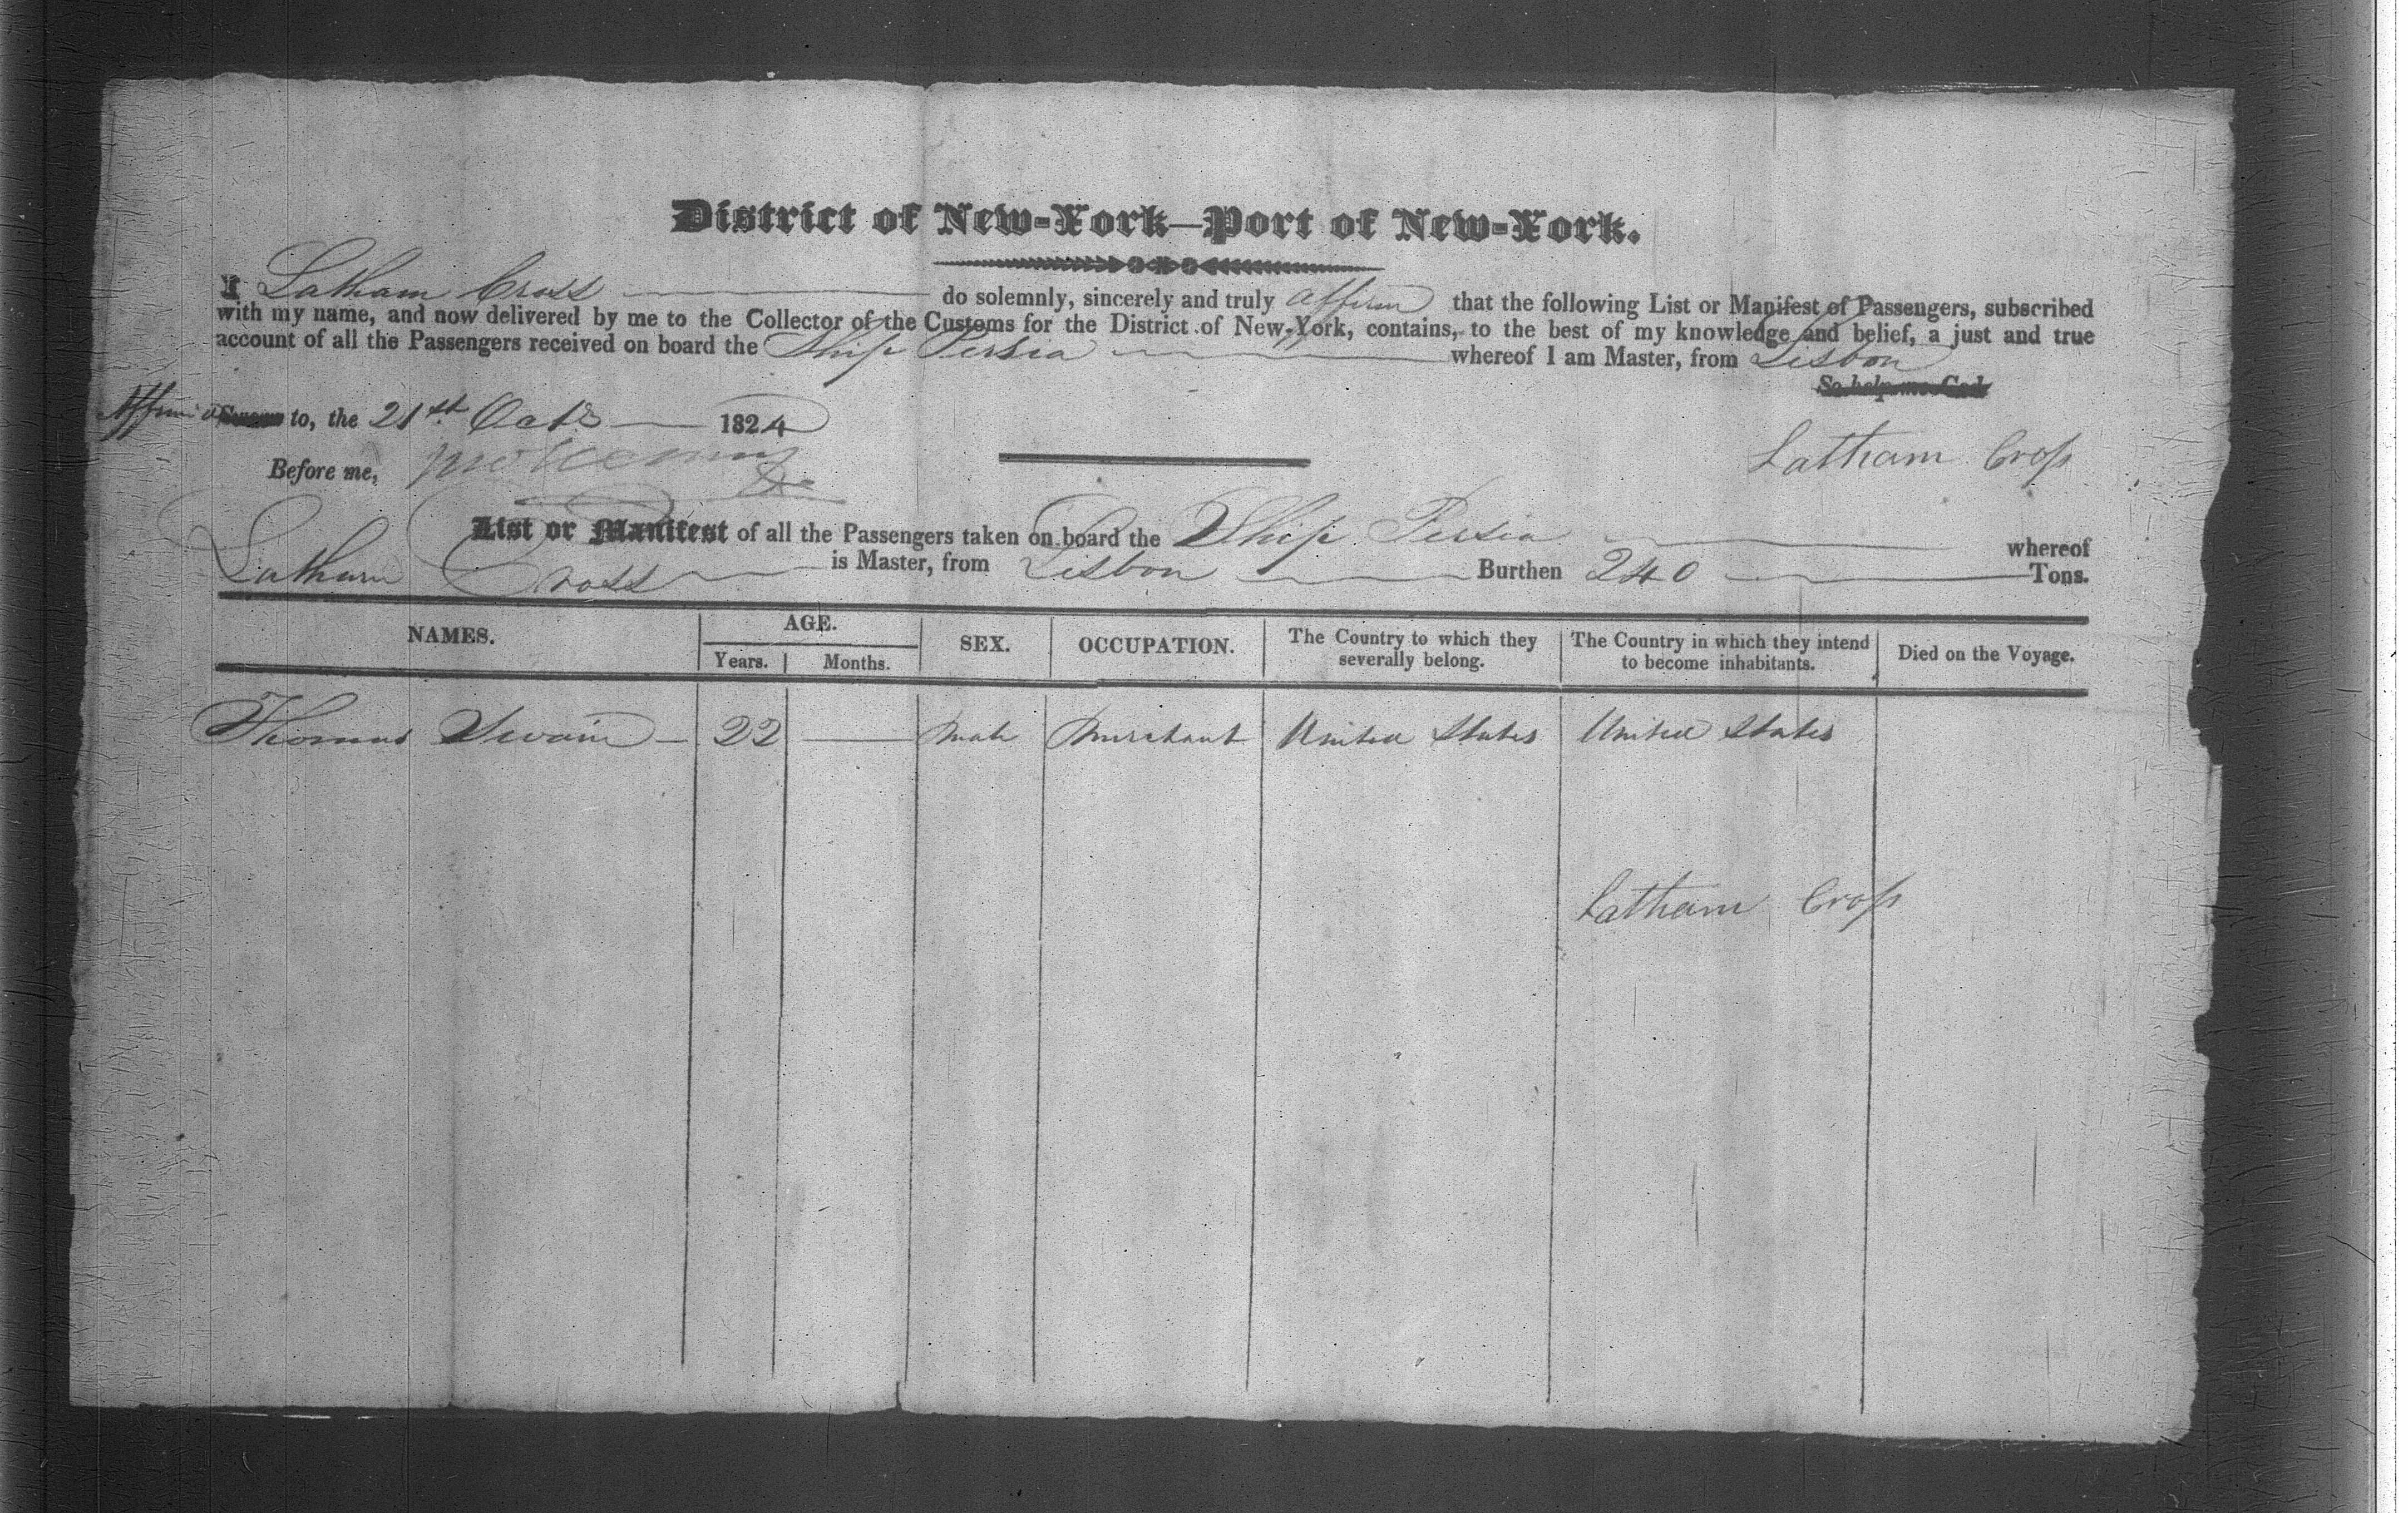 District of New-York—Port of New-York.
I Latham Cross do solemnly, sincerely and truly affirm that the following List or Manifest of Passengers, subscribed
with my name, and now delivered by me to the Collector of the Customs for the District of New-York, contains, to the best of my knowledge and belief, a just and true
account of all the Passengers received on board the Ship Persia whereof I am Master, from Lisbon
So help me God
Affirmed Sworn to, the 21st Octr 1824
Before me,
Latham Cross
List or Manifest of all the Passengers taken on board the Ship Persia whereof
Latham Cross is Master, from Lisbon Burthen 240 Tons.
NAMES. AGE. Years. Months. SEX. OCCUPATION. The Country to which they severally belong. The Country in which they intend to become inhabitants. Died on the Voyage.
Thomas Swain 22 Male Merchant United States United States
Latham Cross